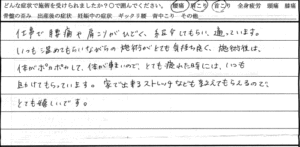 どんな症状で施術を受けられましたか？○で囲んでください。 腰痛 肩こり 首こり 全身疲労 頭痛 膝痛
骨盤の歪み 出産後の症状 妊娠中の症状 ギックリ腰 背中こり その他
仕事で腰痛や肩こりがひどく、紹介してもらい、通っています。
いつも温めてもらいながらの施術がとても気持ち良く、施術後は、
体がポカポカして、体が軽いので、とても疲れた時には、いつも
助けてもらっています。家で出来るストレッチなども教えてもらえるので、
とても嬉しいです。